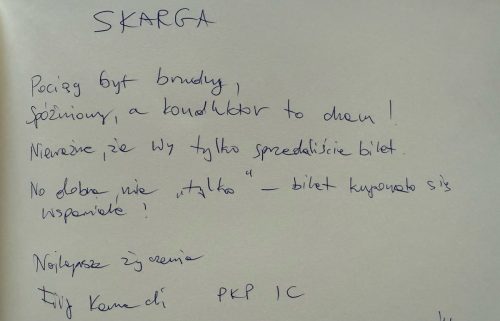 SKARGA
Pociąg był brudny,
spóźniony, a konduktor to cham!
Nieważne, że Wy tylko sprzedaliście bilet.
No dobra, nie „tylko" – bilet kupowało się
wspaniale!
Najlepsze życzenia
PKP IC